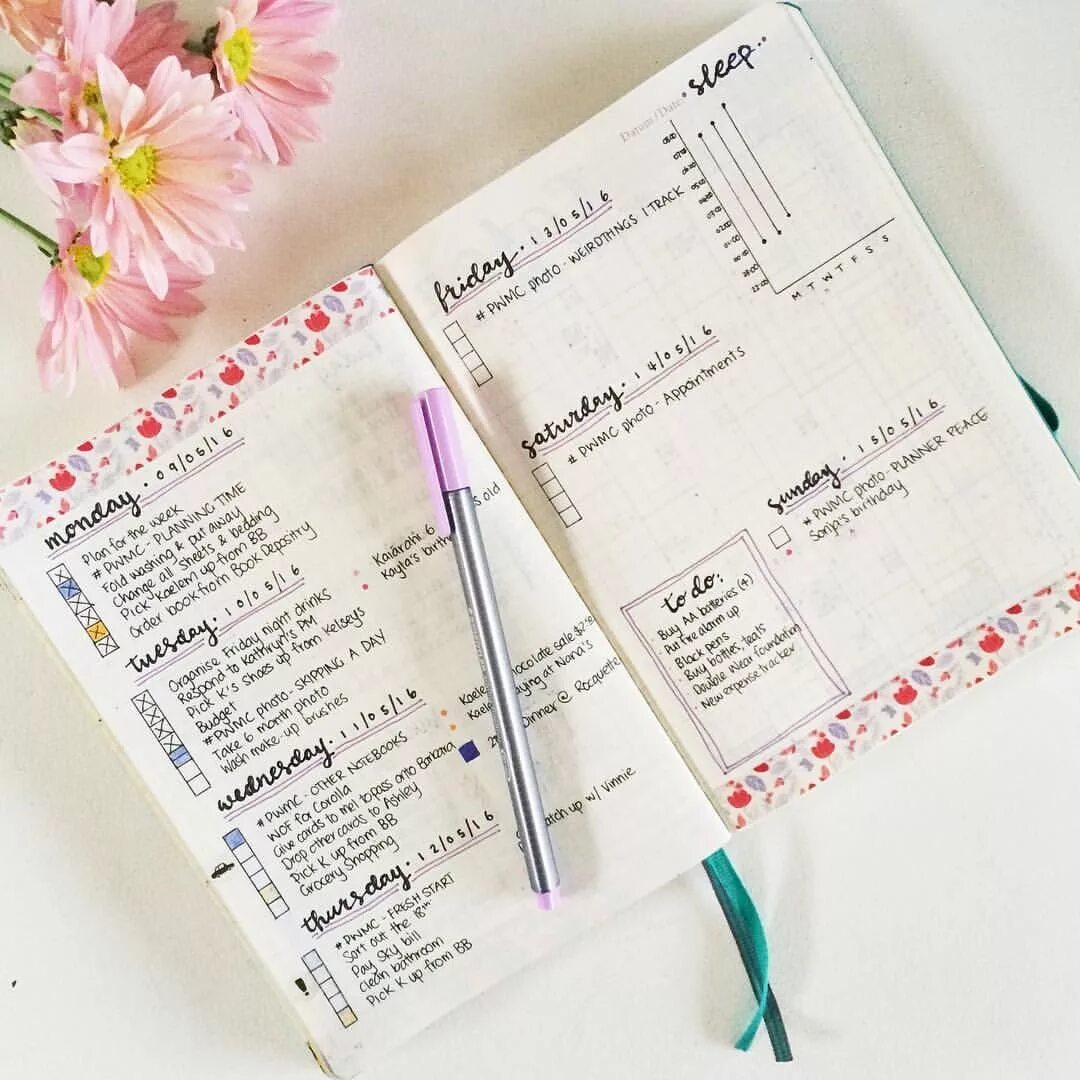 monday. 09/05/16
Plan for the week
#PWMC - PLANNING TIME
Fold washing & put away
Change all sheets & bedding
Pick Kaelem up from BB
Order book from Book Depositry
tuesday. 10/05/16
Organise Friday night drinks
Respond to Kathryn's PM
Pick K's shoes up from Kelseys
Budget
#PWMC photo - SKIPPING A DAY
Take 6 month photo
Wash make-up brushes
Kaiarahi 6 s old
Kayla's birth
wednesday. 11/05/16
#PWMC - OTHER NOTEBOOKS
WOF for Corolla
Give cards to mel to pass onto Barbara
Drop other cards to Ashley
Pick K up from BB
Grocery Shopping
Kaele chocolate sale
Kaele ying at Nana's
Dinner @ Rocquette
thursday. 12/05/16
#PWMC - FRESH START
Sort out the 18th
Pay Sky bill
Clean bathroom
Pick K up from BB
atch up w/ Vinnie
friday. 13/05/16
#PWMC photo - WEIRD THINGS I TRACK
saturday. 14/05/16
#PWMC photo - Appointments
sunday. 15/05/16
#PWMC photo - PLANNER PEACE
Sonja's birthday
to do:
Buy AA batteries (4)
Put fire alarm up
Black pens
Buy bottles, teats
Double Wear foundation
New expense tracker
Datum/Date:
sleep..
M T W T F S S